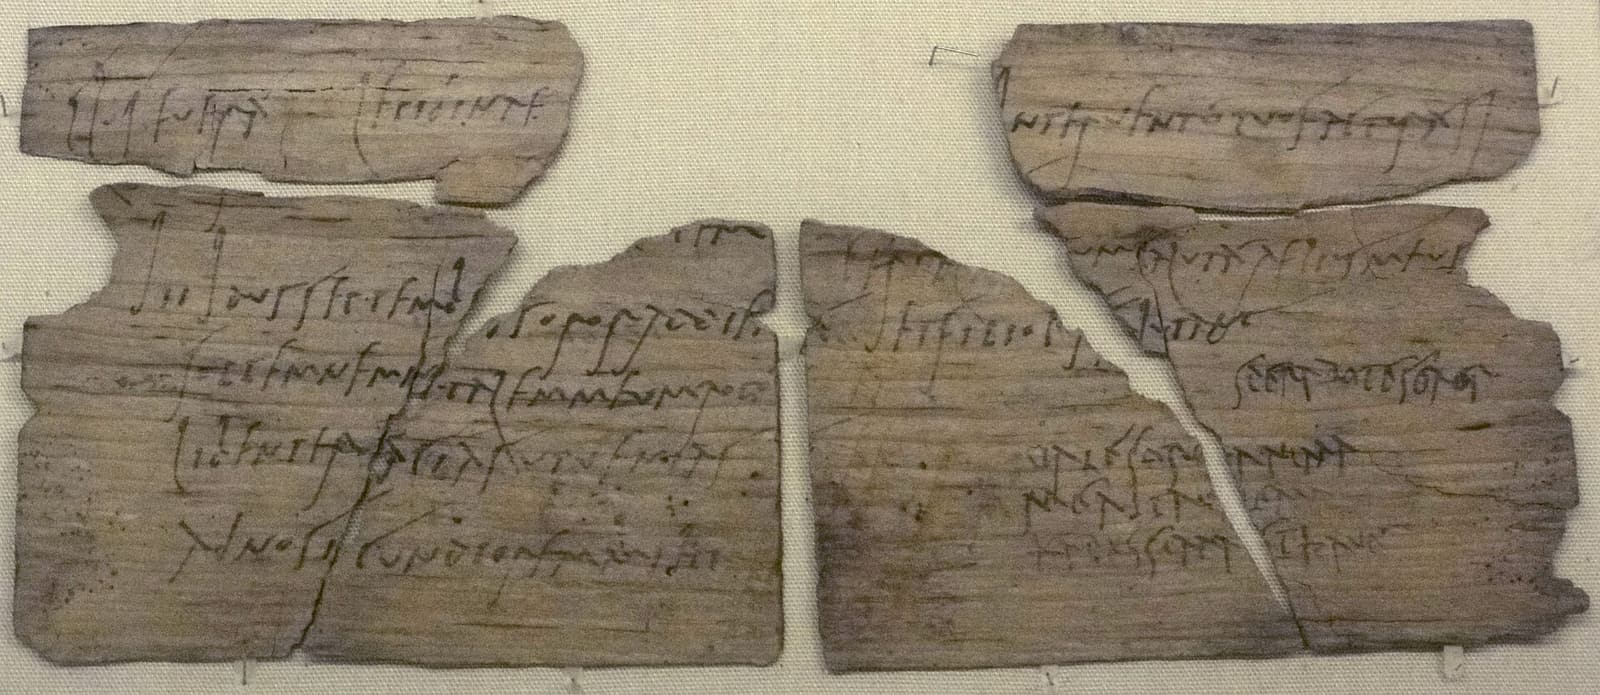 Cl Severa Lepidinae
iii Idus Septembr s soror ad diem
sollemnem natalem meum rogo
libenter facias ut venias
ad nos iucundiorem mihi
interventu tuo factura si
Cerial uum saluta Aelius meus
et filiolus salutant
sperabo te soror
vale soror anima
mea ita valeam
karissima et have